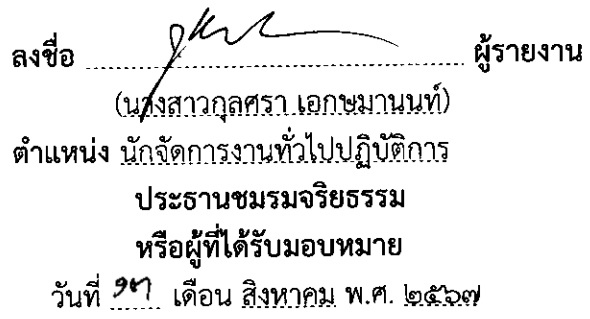 ลงชื่อ ผู้รายงาน
(นางสาวกุลศรา เอกษมานนท์)
ตำแหน่ง นักจัดการงานทั่วไปปฏิบัติการ
ประธานชมรมจริยธรรม
หรือผู้ที่ได้รับมอบหมาย
วันที่ เดือน สิงหาคม พ.ศ. ๒๕๖๗